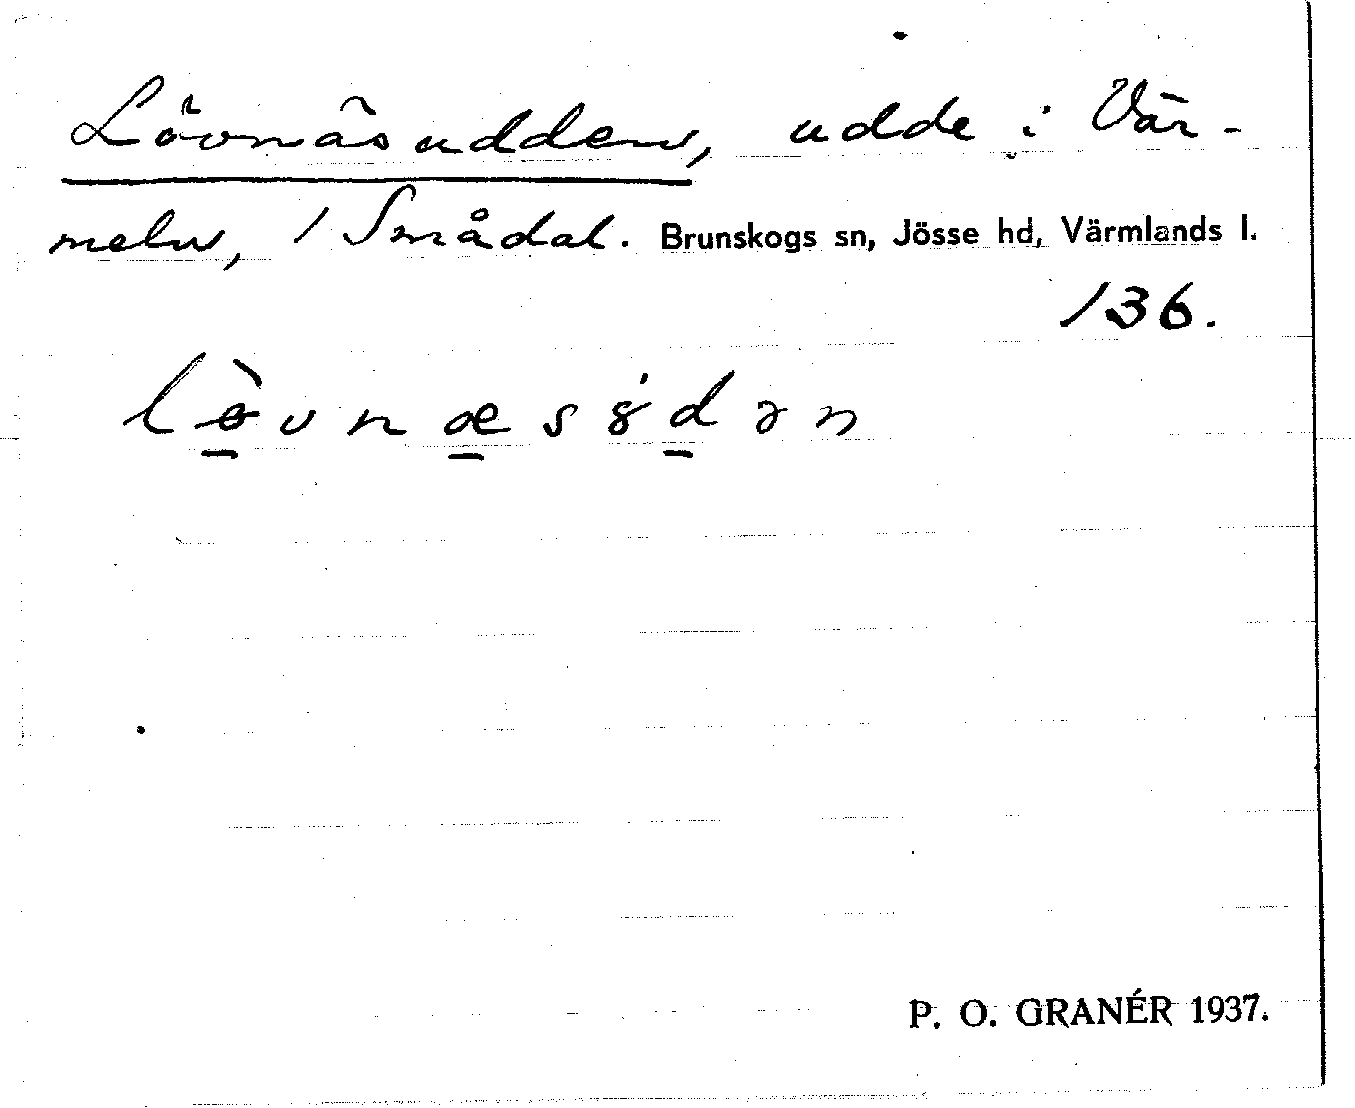 Lövnäsudden, udde i Vär-
meln, / Smådal. Brunskogs sn, Jösse hd, Värmlands l.
136.
P. O. GRANÉR 1937.